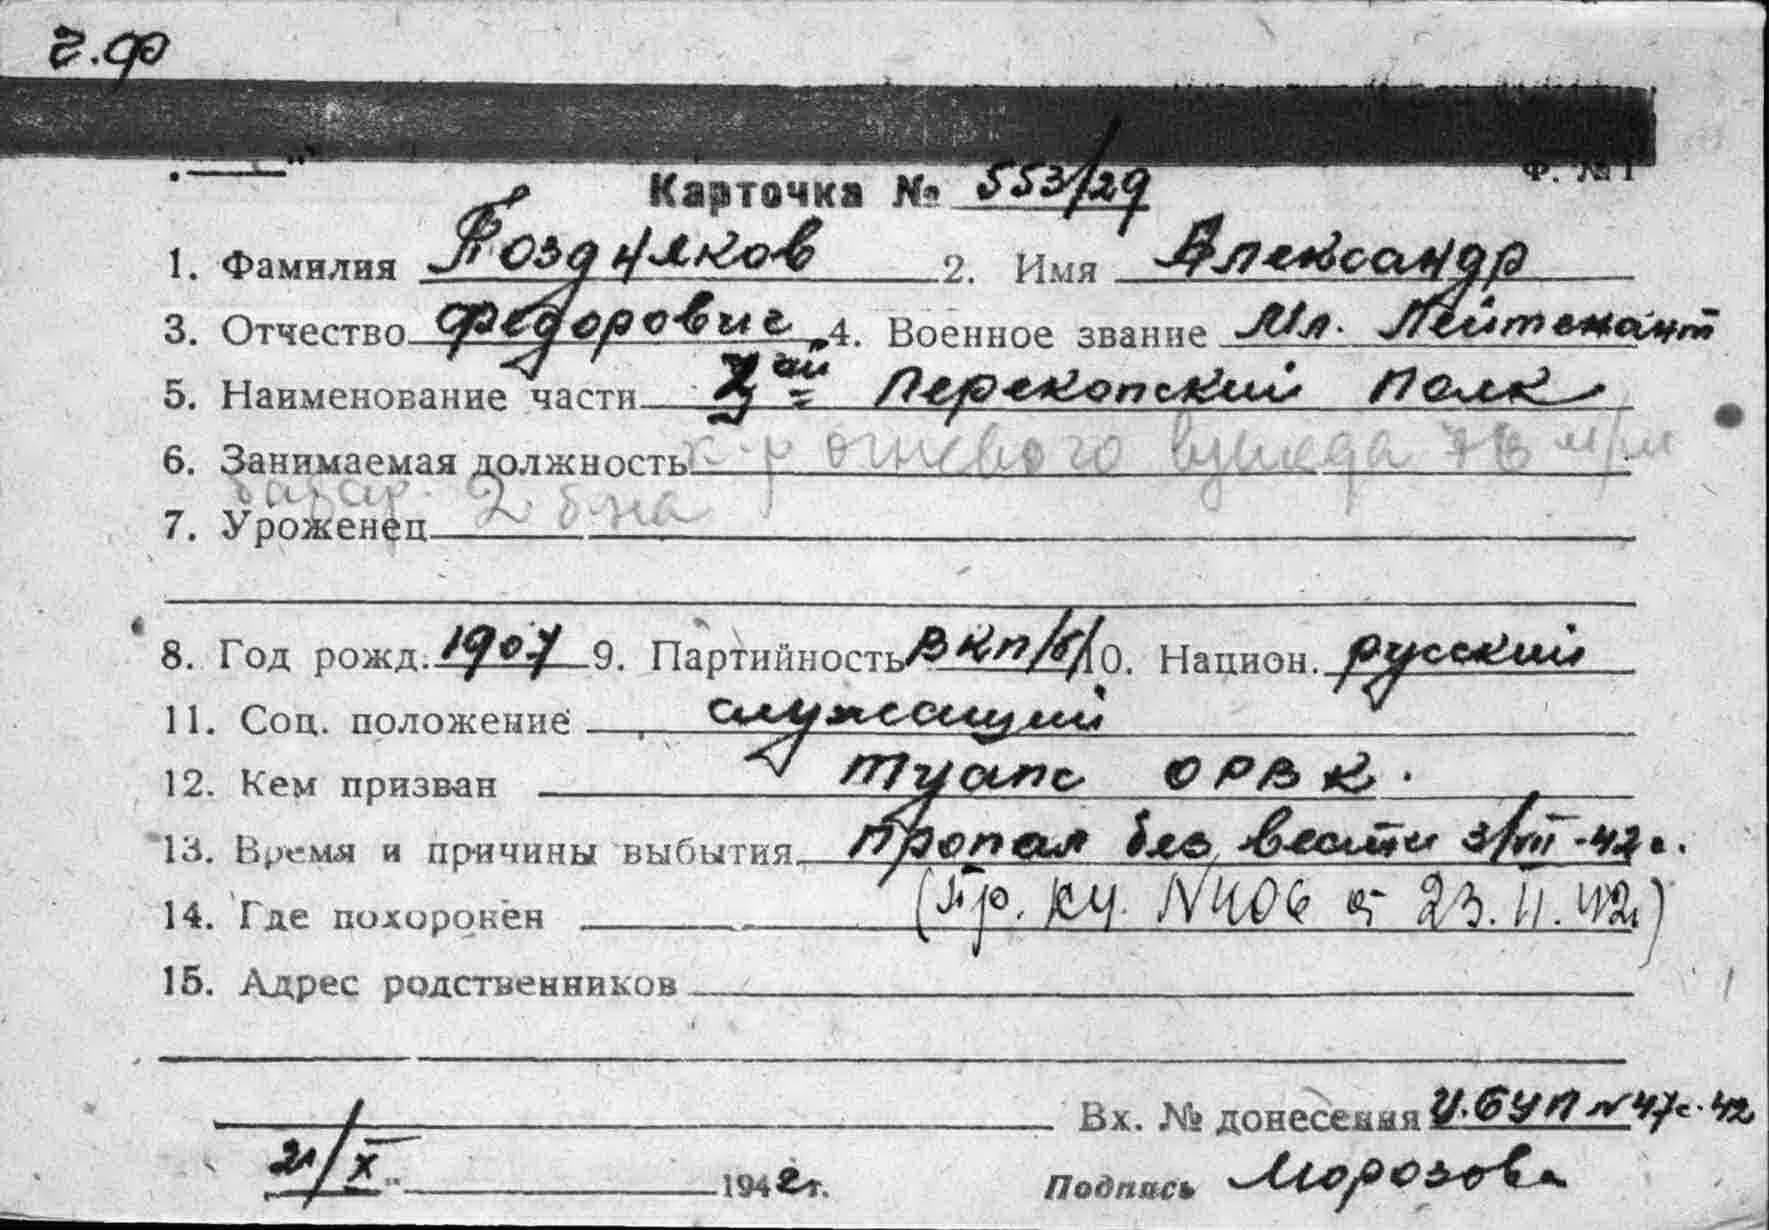 ч.ф
Ф. № 1
Карточка № 553/29
1. Фамилия Поздняков 2. Имя Александр
3. Отчество Федорович 4. Военное звание Мл. Лейтенант
5. Наименование части 2ой Перекопский Полк
6. Занимаемая должность к-р огневого взвода 76 м/м
батар. 2 б-на
7. Уроженец
8. Год рожд. 1907 9. Партийность ВКП/б/ 10. Национ. русский
11. Соц. положение служащий
12. Кем призван Туапс ОРВК.
13. Время и причины выбытия Пропал без вести 3/VII-42г.
14. Где похоронен (Пр. КЧ. №406 от 23.11.42)
15. Адрес родственников
Вх. № донесения И.БУП №47с-42
21/X 1942 г. Подпись Морозова